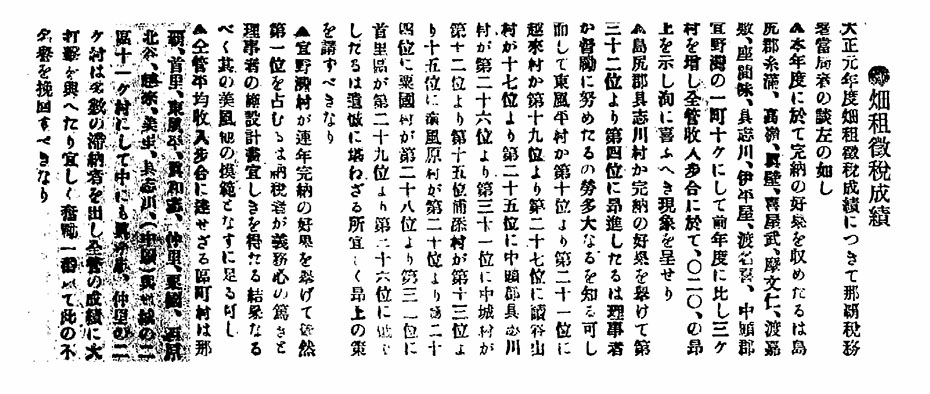 畑租徵稅成績
大正元年度畑租徵稅成績につきて那覇稅務
署當局者の談左の如し
▲本年度に於て完納の好果を收めたるは島
尻郡糸滿、高嶺、眞壁、喜屋武、摩文仁、渡嘉
敷、座間味、具志川、伊平屋、渡名喜、中頭郡
宜野灣の一町十ケにして前年度に比し三ケ
村を增し全管收入步合に於て、〇二〇、の昂
上を示し洵に喜ふへき現象を呈せり
▲島尻郡具志川村か完納の好果を擧けて第
三十二位より第四位に昇進したるは理事者
か督勵に努めたるの勞多大なるを知る可し
而して東風平村か第十位より第二十一位に
越來村か第十九位より第二十七位に讀谷山
村が十七位より第二十五位に中頭郡具志川
村が第二十六位より第三十一位に中城村が
第十二位より第十五位浦添村が第十三位よ
り十五位に南風原村が第二十位より二十
四位に粟國村が第二十八位より第三 位に
首里區が第二十九位より第二十六位に
したるは遺憾に堪わざる所宜しく昂上の策
を講すべきなり
▲宜野灣村が連年完納の好果を擧げて嶄然
第一位を占むるは納稅者が義務心の篤きと
理事者の 設計畫宜しきを得たる結果なる
べく其の美風他の模範となすに足る可し
▲全管平均收入步合に達せざる區町村は那
覇、首里、東風平、眞和志、仲里、粟國、西原
北谷、越來、美里、具志川、(中頭)與那城の二
區十一ケ村にして中にも 、仲里の二
ケ村は多數の滯納者を出し全管の成績に大
打擊を與へたり宜しく奮勵一番 て此の不
名譽を挽回すべきなり